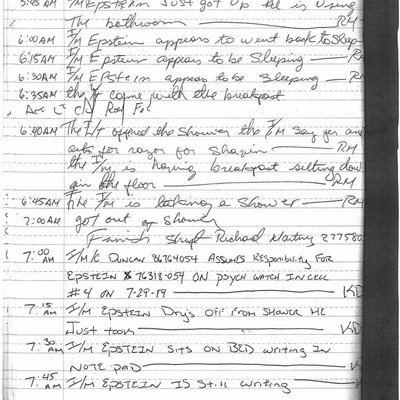 5:45 AM I/M EPSTEIN Just got up He is using
The bathroom RM
6:00AM I/M Epstein appears to went back to sleep
6:15AM I/M Epstein appears to be sleeping RM
6:30AM I/M Epstein appears to be sleeping RM
6:35AM the come with the breakfast
6:40AM The offered the shower the I/M say yes and
asks for razor for shavin RM
the I/M is having breakfast sitting dow
on the floor RM
6:45AM The I/M is taking a shower RM
7:00AM got out of shower
Finish Shift Richard
7:00 AM I/M K DUNCAN ASSUMES RESPONSIBILITY FOR
EPSTEIN 76318-054 ON PSYCH WATCH IN CELL
#4 ON 7-29-19 KD
7:15 AM I/M EPSTEIN DRY'S OFF FROM SHOWER HE
JUST TOOK KD
7:30 AM I/M EPSTEIN SITS ON BED WRITING IN
NOTE PAD K
7:45 AM I/M EPSTEIN IS STILL WRITING K